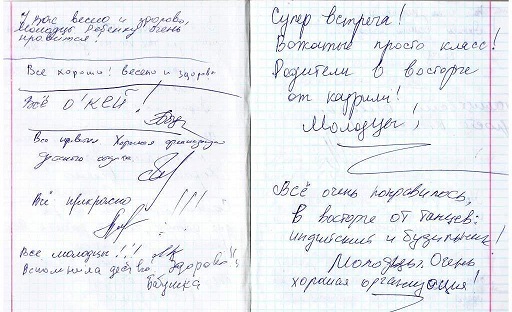 У Вас весело и здорово,
Молодцы! Ребенку очень
нравится!
Всё хорошо! Весело и здорово
Всё О'КЕЙ!
Все нравится. Хорошая организация
детского отдыха
Всё прекрасно!!!
Все молодцы!!!
Вспомнила детство. Здорово!!
Бабушка
Супер встреча!
Вожатые просто класс!
Родители в восторге
от кадрили!
Молодцы!
Всё очень понравилось,
В восторге от танцев:
индийский и будильник!
Молодцы. Очень
хорошая организация!